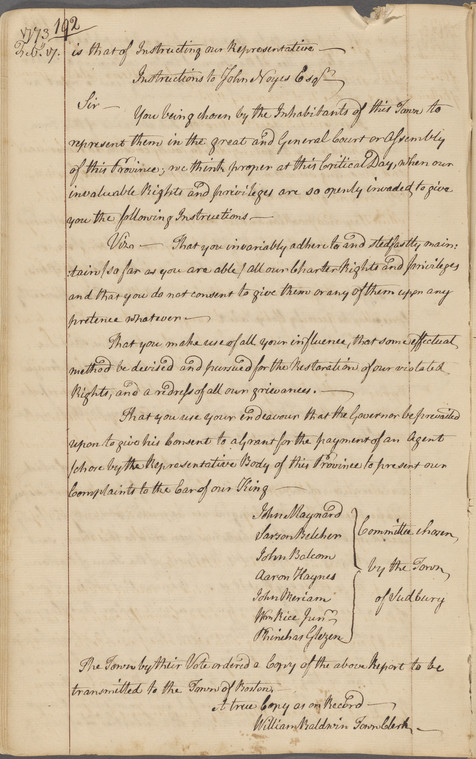 192
1773
Feb.y 17.
is that of Instructing our Representative —
Instructions to John Noyes Esqr.
Sir — You being chosen by the Inhabitants of this Town to
represent them in the great and General Court or Assembly
of this Province; we think proper at this Critical Day, when our
invaluable Rights and privileges are so openly invaded to give
you the following Instructions —
Vizn. — That you invariably adhere to and stedfastly main:
tain (so far as you are able) all our Charter Rights and Privileges
and that you do not consent to give them or any of them up on any
pretence whatever —
That you make use of all your influence, that some effectual
method be devised and pursued for the Restoration of our violated
Rights, and a redress of all our grievances. —
That you use your Endeavour that the Governor be prevailed
upon to give his Consent to a Grant for the payment of an Agent
chose by the Representative Body of this Province to present our
Complaints to the Ear of our King —
John Maynard
Sarson Belcher
John Balcom
Aaron Haynes
John Meriam
Wm Rice Junr.
Phinehas Glezen
Committee chosen
by the Town
of Sudbury
The Town by their Vote ordered a Copy of the above Report to be
transmitted to the Town of Boston,
A true Copy as on Record —
William Baldwin Town Clerk —